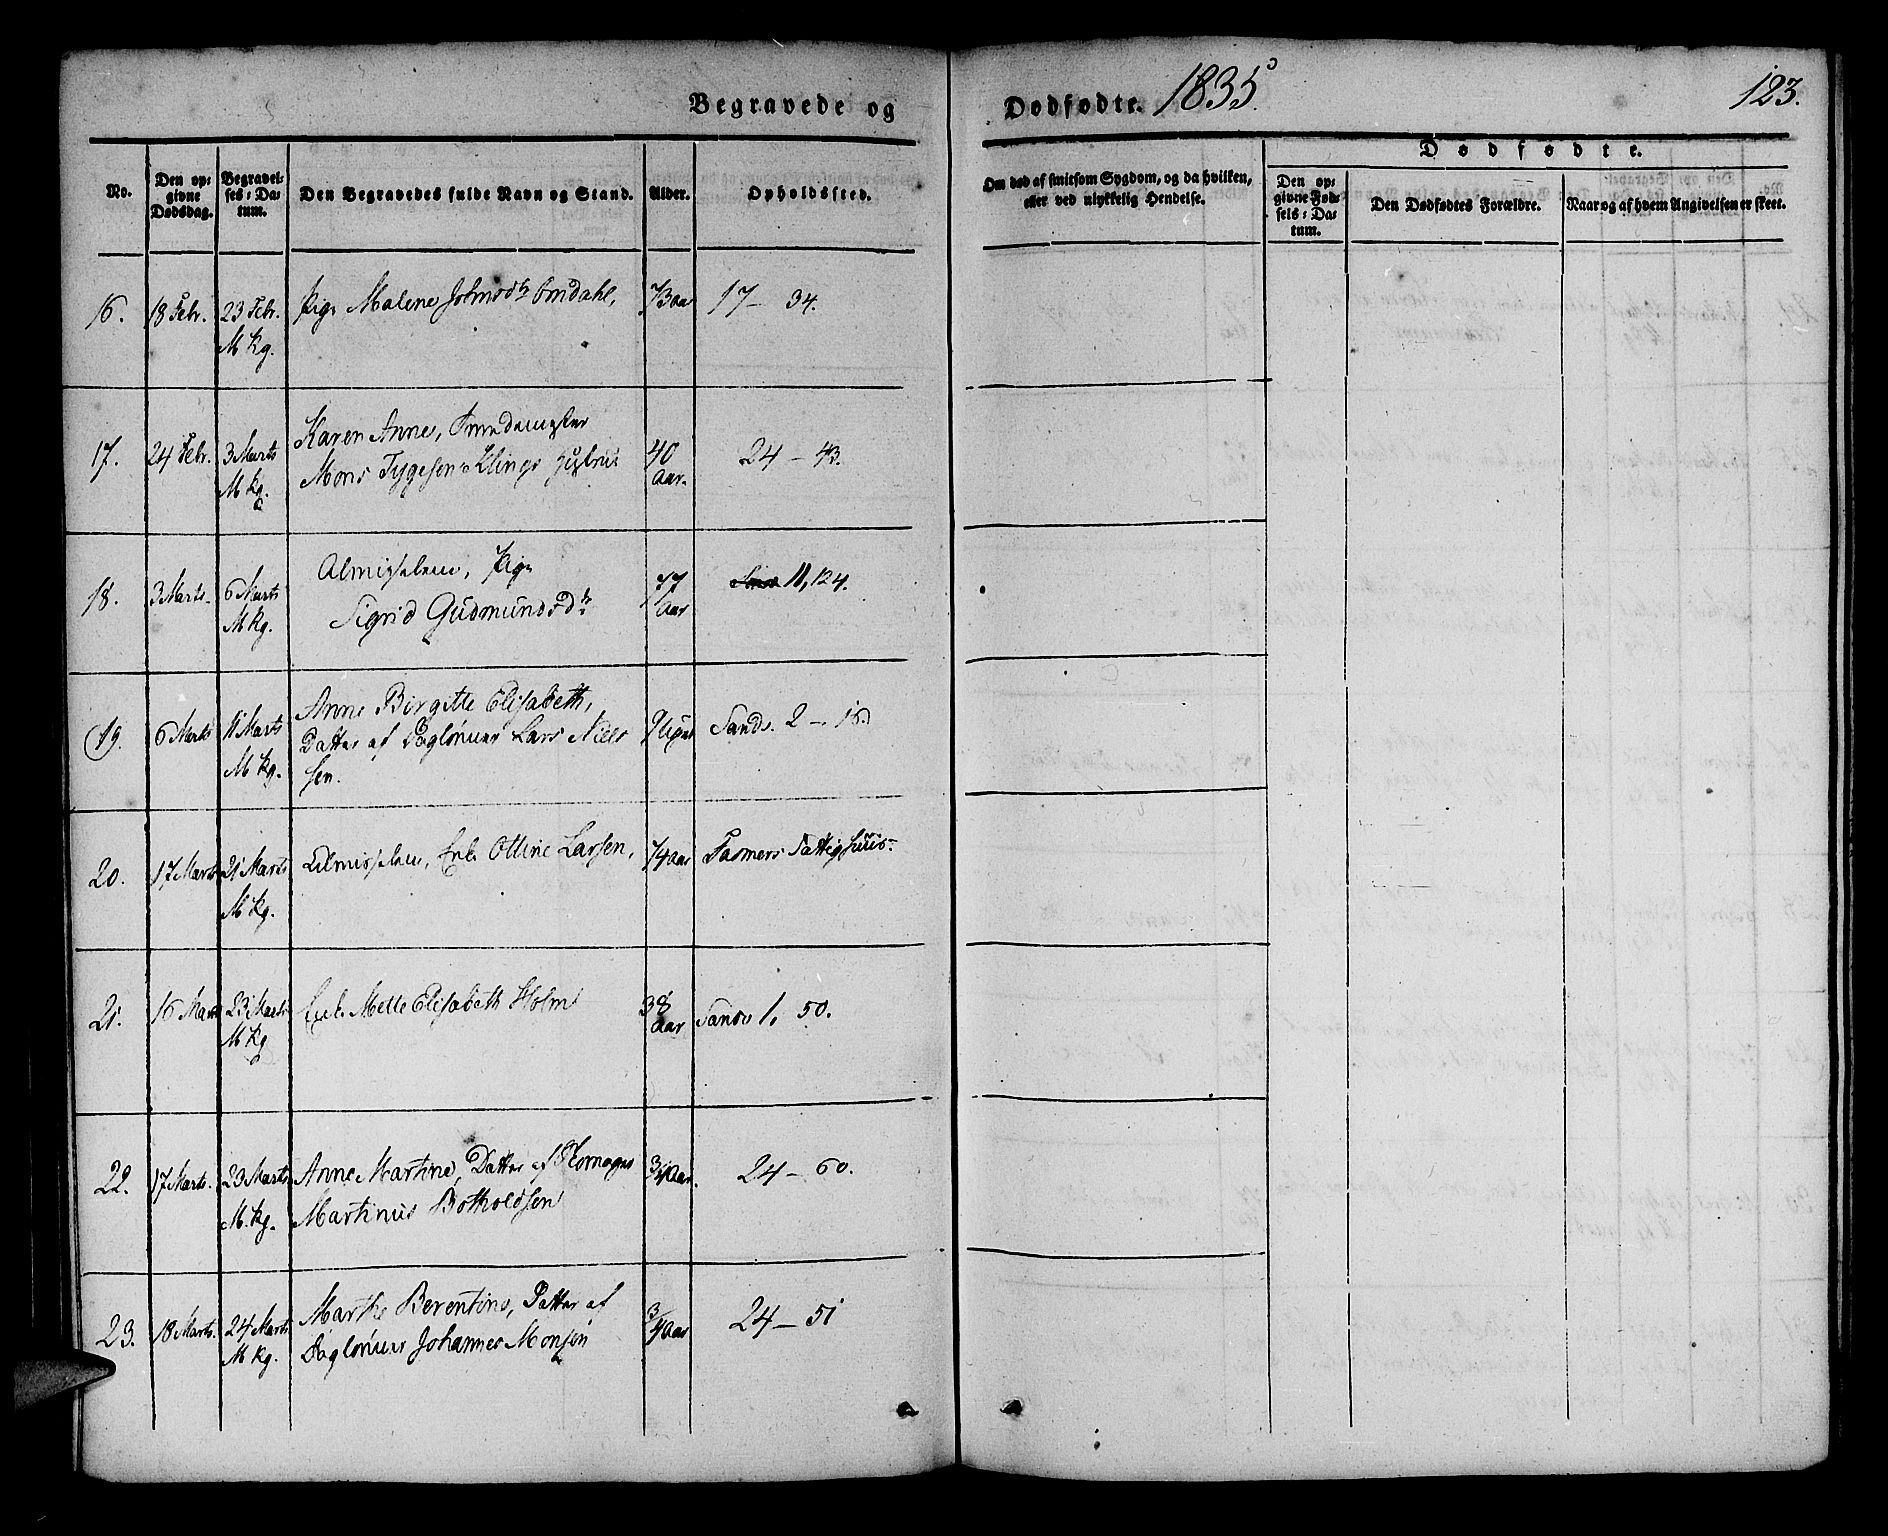 Begravede og
Dödfødte. 1835.
123.
No.
Den op-
givne
Dödsdag.
Begravel-
ses-Da-
tum.
Den Begravedes fulde Navn og Stand.
Alder.
Opholdssted.
Om död af smitsom Sygdom, og da hvilken,
eller ved ulykkelig Hendelse.
Dødfødte.
Den op-
givne Föd-
sels-Da-
tum.
Den Dödfödtes Forældre.
Naar og af hvem Angivelsen er skeet.
16. 18 Febr. 23 Febr. Pige Malene Johnsdr Omdahl, 73 Aar 17 - 34.
M Kg.
17. 24 Febr. 3 Marts Karen Anne, 40 24 - 43.
M Kg. Mons Tygesen Klings Hustrue Aar.
18. 3 Marts. 6 Marts Almisselem, Pige 77 11, 124.
M Kg. Sigrid Gudmundsdr Aar
19. 6 Marts 11 Marts Anne Birgitte Elisabeth, 9 Uger Sands. 2 - 16.
M Kg. Datter af Daglönner Lars Niel-
sen.
20. 17 Marts 21 Marts Almisselem, Enke Olline Larsen, 74 Aar Fasmers Fattighuus
M Kg.
21. 16 Marts 23 Marts Enke Mette Elisabeth Holm 38 Sandv 1, 50.
M Kg Aar
22. 17 Marts. 23 Marts Anne Martine, Datter af Skomager 3/4 Aar. 24 - 60.
M. Kg. Martinus Botholdsen
23. 18 Marts. 24 Marts Marthe Berentine, Datter af 3/4 Aar 24 - 51
M Kg. Daglönner Johannes Monsen